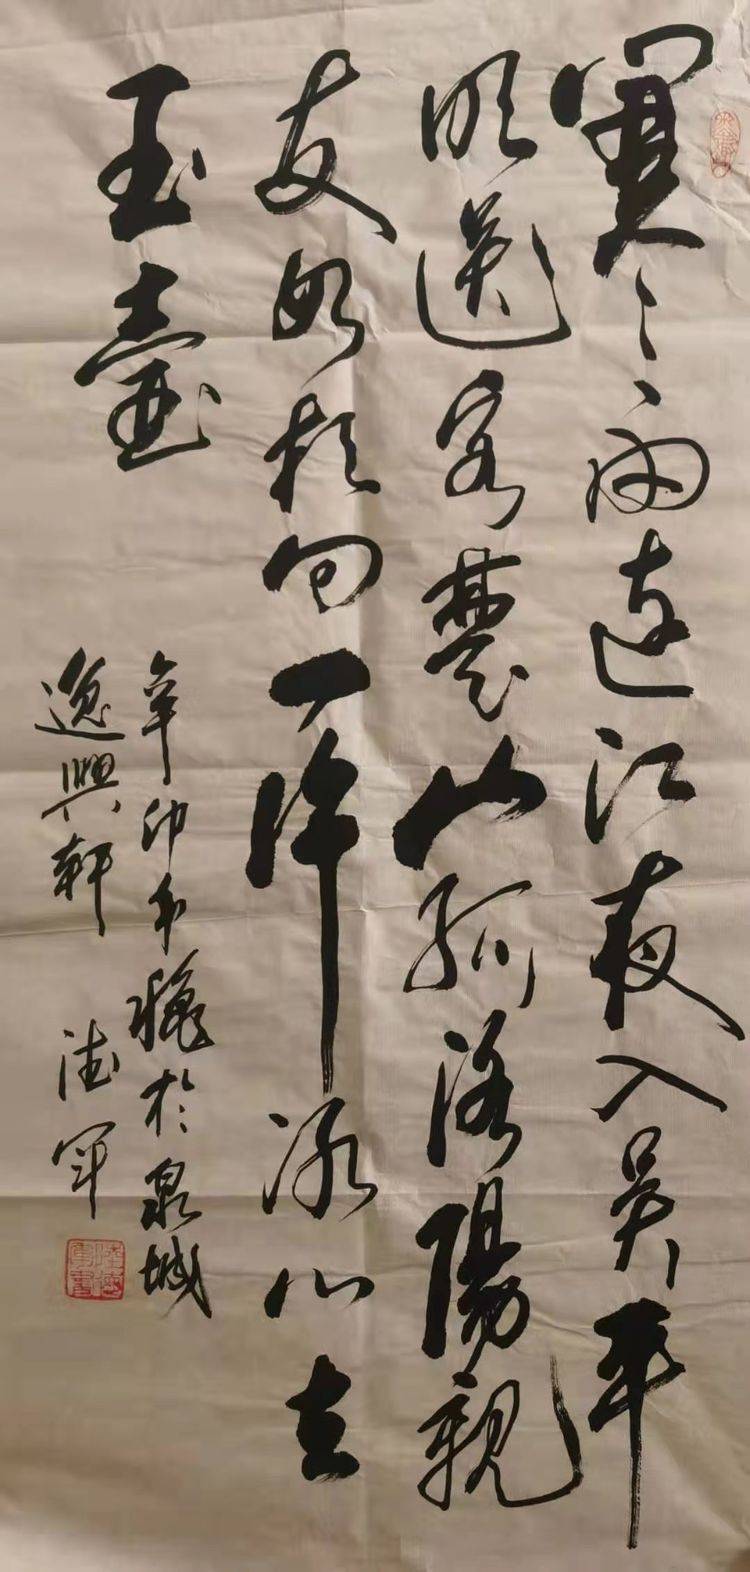 寒雨連江夜入吳平
明送客楚山孤洛陽親
友如相问一片冰心在
玉壺
辛卯年穐於泉城
逸興軒 德軍